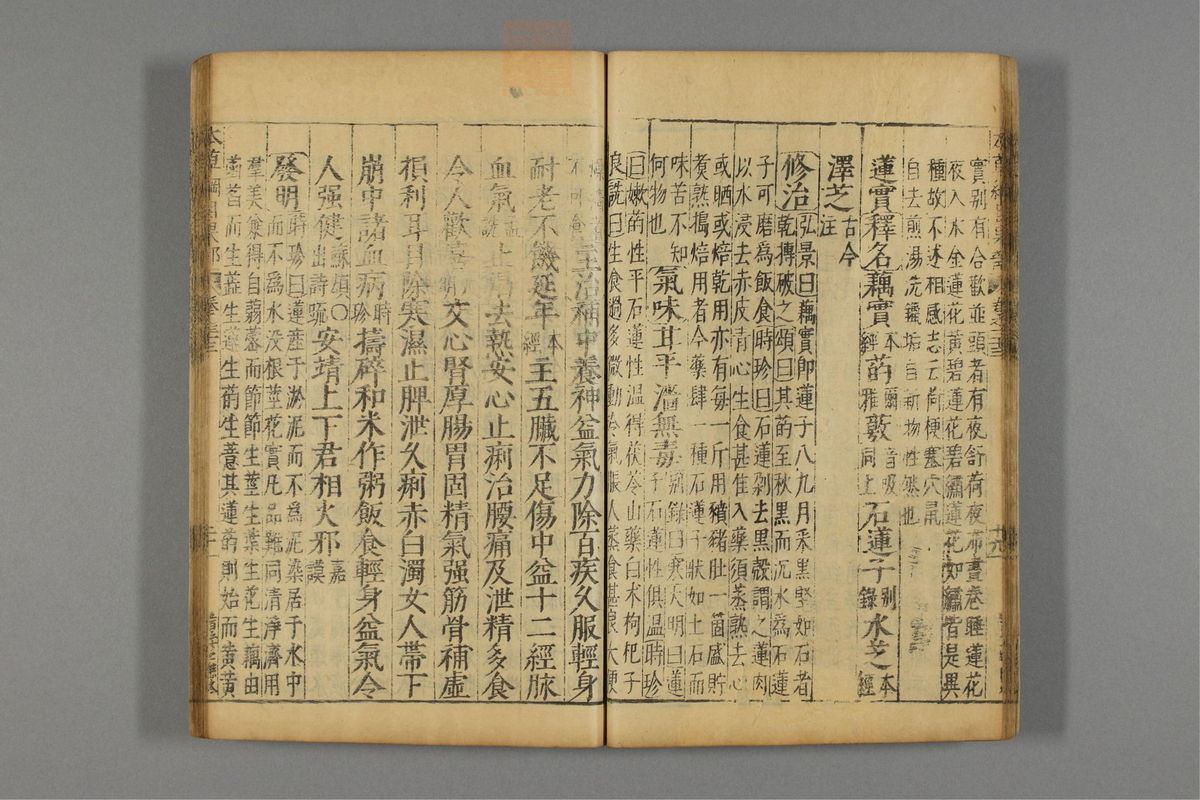 實別有合歡並頭者有夜舒荷夜布晝卷睡蓮花
夜入水金蓮花黃碧蓮花碧繡蓮花如繡皆是異
種故不述相感志云荷梗塞穴鼠
自去煎湯洗鑞垢自新物性然也
蓮實釋名藕實本經菂爾雅薂音吸同上石蓮子別錄水芝本經
澤芝古今注
修治弘景曰藕實即蓮子八九月采黑堅如石者
乾擣破之頌曰其菂至秋黑而沉水為石蓮
子可磨為飯食時珍曰石蓮剁去黑殼謂之蓮肉
以水浸去赤皮青心生食甚佳入藥須蒸熟去心
或曬或焙乾用亦有每一斤用豶豬肚一箇盛貯
煑熟搗焙用者今藥肆一種石蓮子狀如土石而
味苦不知
何物也
氣味甘平濇無毒別錄曰寒大明曰蓮
子石蓮性俱溫時珍
曰嫩菂性平石蓮性溫得茯苓山藥白术枸杞子
良詵曰生食過多微動冷氣脹人蒸食甚良大便
主治補中養神益氣力除百疾久服輕身
耐老不饑延年本經主五臟不足傷中益十二經脉
血氣孟詵止渴去熱安心止痢治腰痛及泄精多食
令人歡喜大明交心腎厚腸胃固精氣强筋骨補虛
損利耳目除寒濕止脾泄久痢赤白濁女人帶下
崩中諸血病時珍擣碎和米作粥飯食輕身益氣令
人强健蘇頌○出詩疏安靖上下君相火邪嘉謨
發明時珍曰蓮產于淤泥而不為泥染居于水中
而不為水没根莖花實凡品難同清淨濟用
羣美兼得自蒻蔤而節節生莖生葉生花生藕由
菡萏而生蕊生蓮生菂生薏其蓮菂則始而黃黃